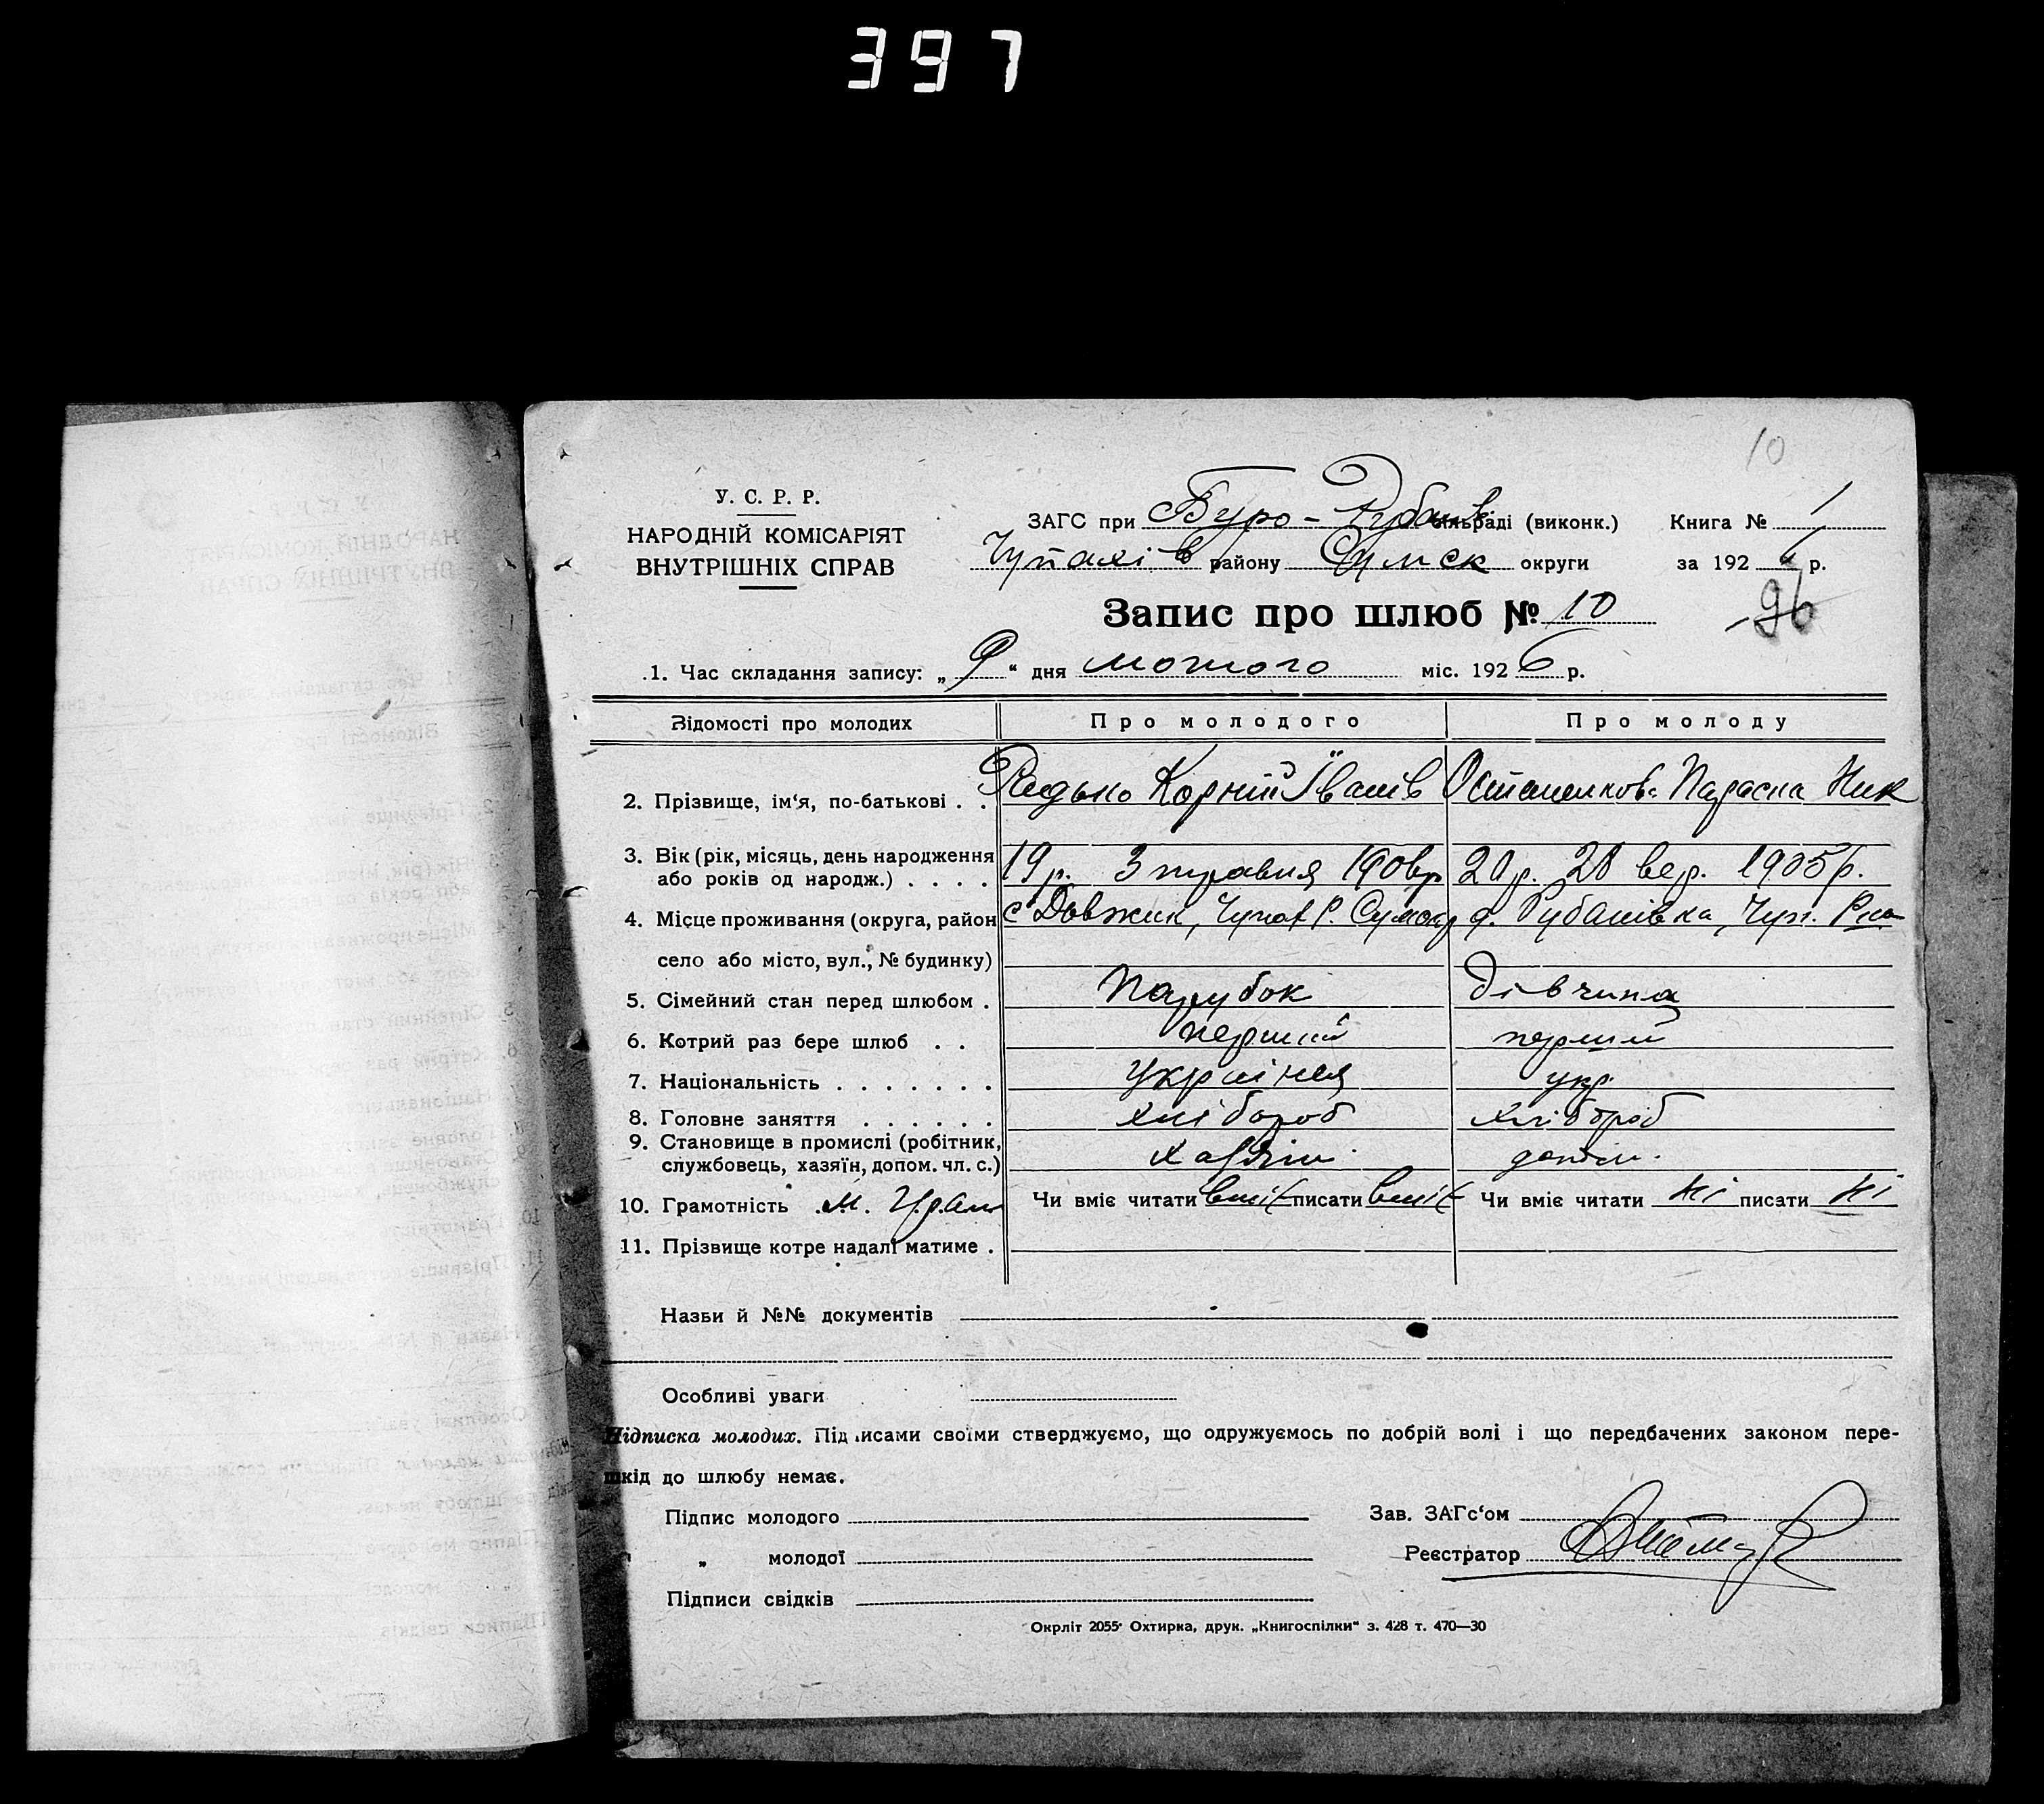 397
10
У. С. Р. Р.
НАРОДНІЙ КОМІСАРІЯТ
ВНУТРІШНІХ СПРАВ
ЗАГС при Буро-Рубанів сільраді (виконк.) Книга № 1
Чупахів району Сумск округи за 1926 р.
Запис про шлюб № 10
96
1. Час складання запису: „9“ дня лютого міс. 1926 р.
Відомості про молодих Про молодого Про молоду
2. Прізвище, ім‘я, по-батькові . . Редько Корній Іванів Параска Ник
3. Вік (рік, місяць, день народження 19 р. 3 травня 1906 р 20 р. 28 вер. 1905 р.
або років од народж.) . . . .
4. Місце проживання (округа, район с Довжик, Чупах Р. д. Рубанівка, Чуп.
село або місто, вул., № будинку)
5. Сімейний стан перед шлюбом . Парубок дівчина
6. Котрий раз бере шлюб . . перший перший
7. Національність . . . . . . . укр.
8. Головне заняття . . . . . . хлібороб хлібороб
9. Становище в промислі (робітник,
службовець, хазяїн, допом. чл. с.) хазяїн допом.
10. Грамотність Чи вміє читати вміє писати вміє Чи вміє читати ні писати ні
11. Прізвище котре надалі матиме .
Назви й №№ документів
Особливі уваги
Підписка молодих. Підписами своїми стверджуємо, що одружуємось по добрій волі і що передбачених законом пере-
шкід до шлюбу немає.
Підпис молодого Зав. ЗАГс‘ом
„ молодої Реєстратор
Підписи свідків
Окрліт 2055 Охтирка, друк. „Книгоспілки“ з. 428 т. 470—30